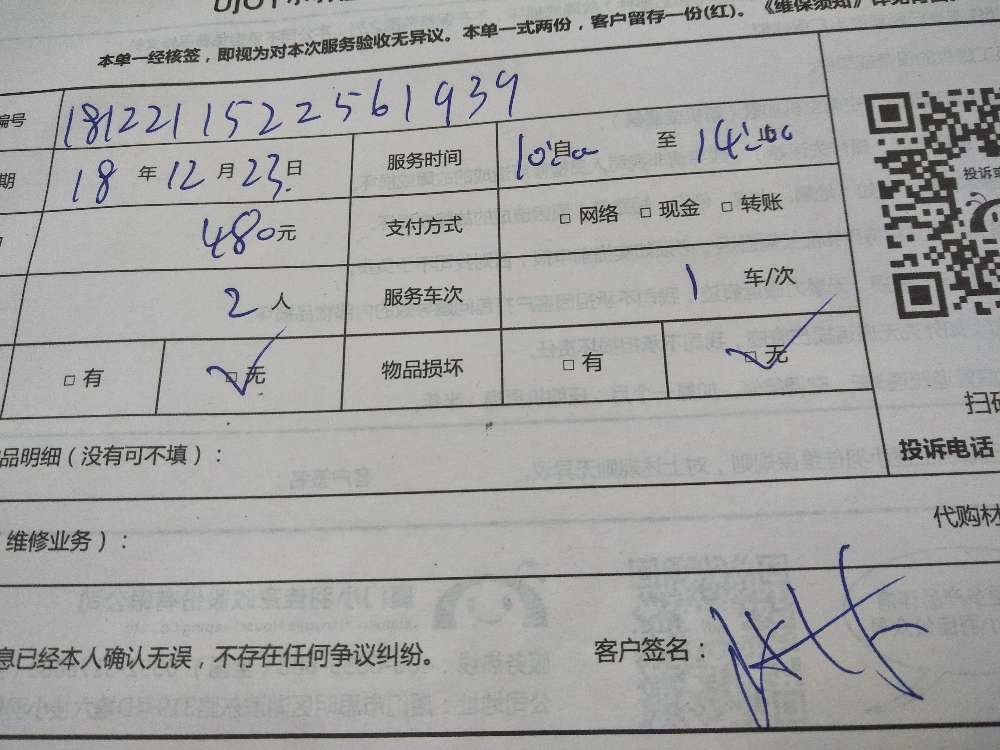 本单一经核签，即视为对本次服务验收无异议。本单一式两份，客户留存一份(红)。《维保须知》
编号 18122115222561939
期 18 年 12 月 23 日 服务时间 10:00 自 至 14:00 止
480元 支付方式 □ 网络 □ 现金 □ 转账
2 人 服务车次 1 车/次
□ 有 □ 无 物品损坏 □ 有 □ 无
投诉或
扫码
品明细（没有可不填）：
投诉电话
维修业务）：
代购材
息已经本人确认无误，不存在任何争议纠纷。 客户签名：